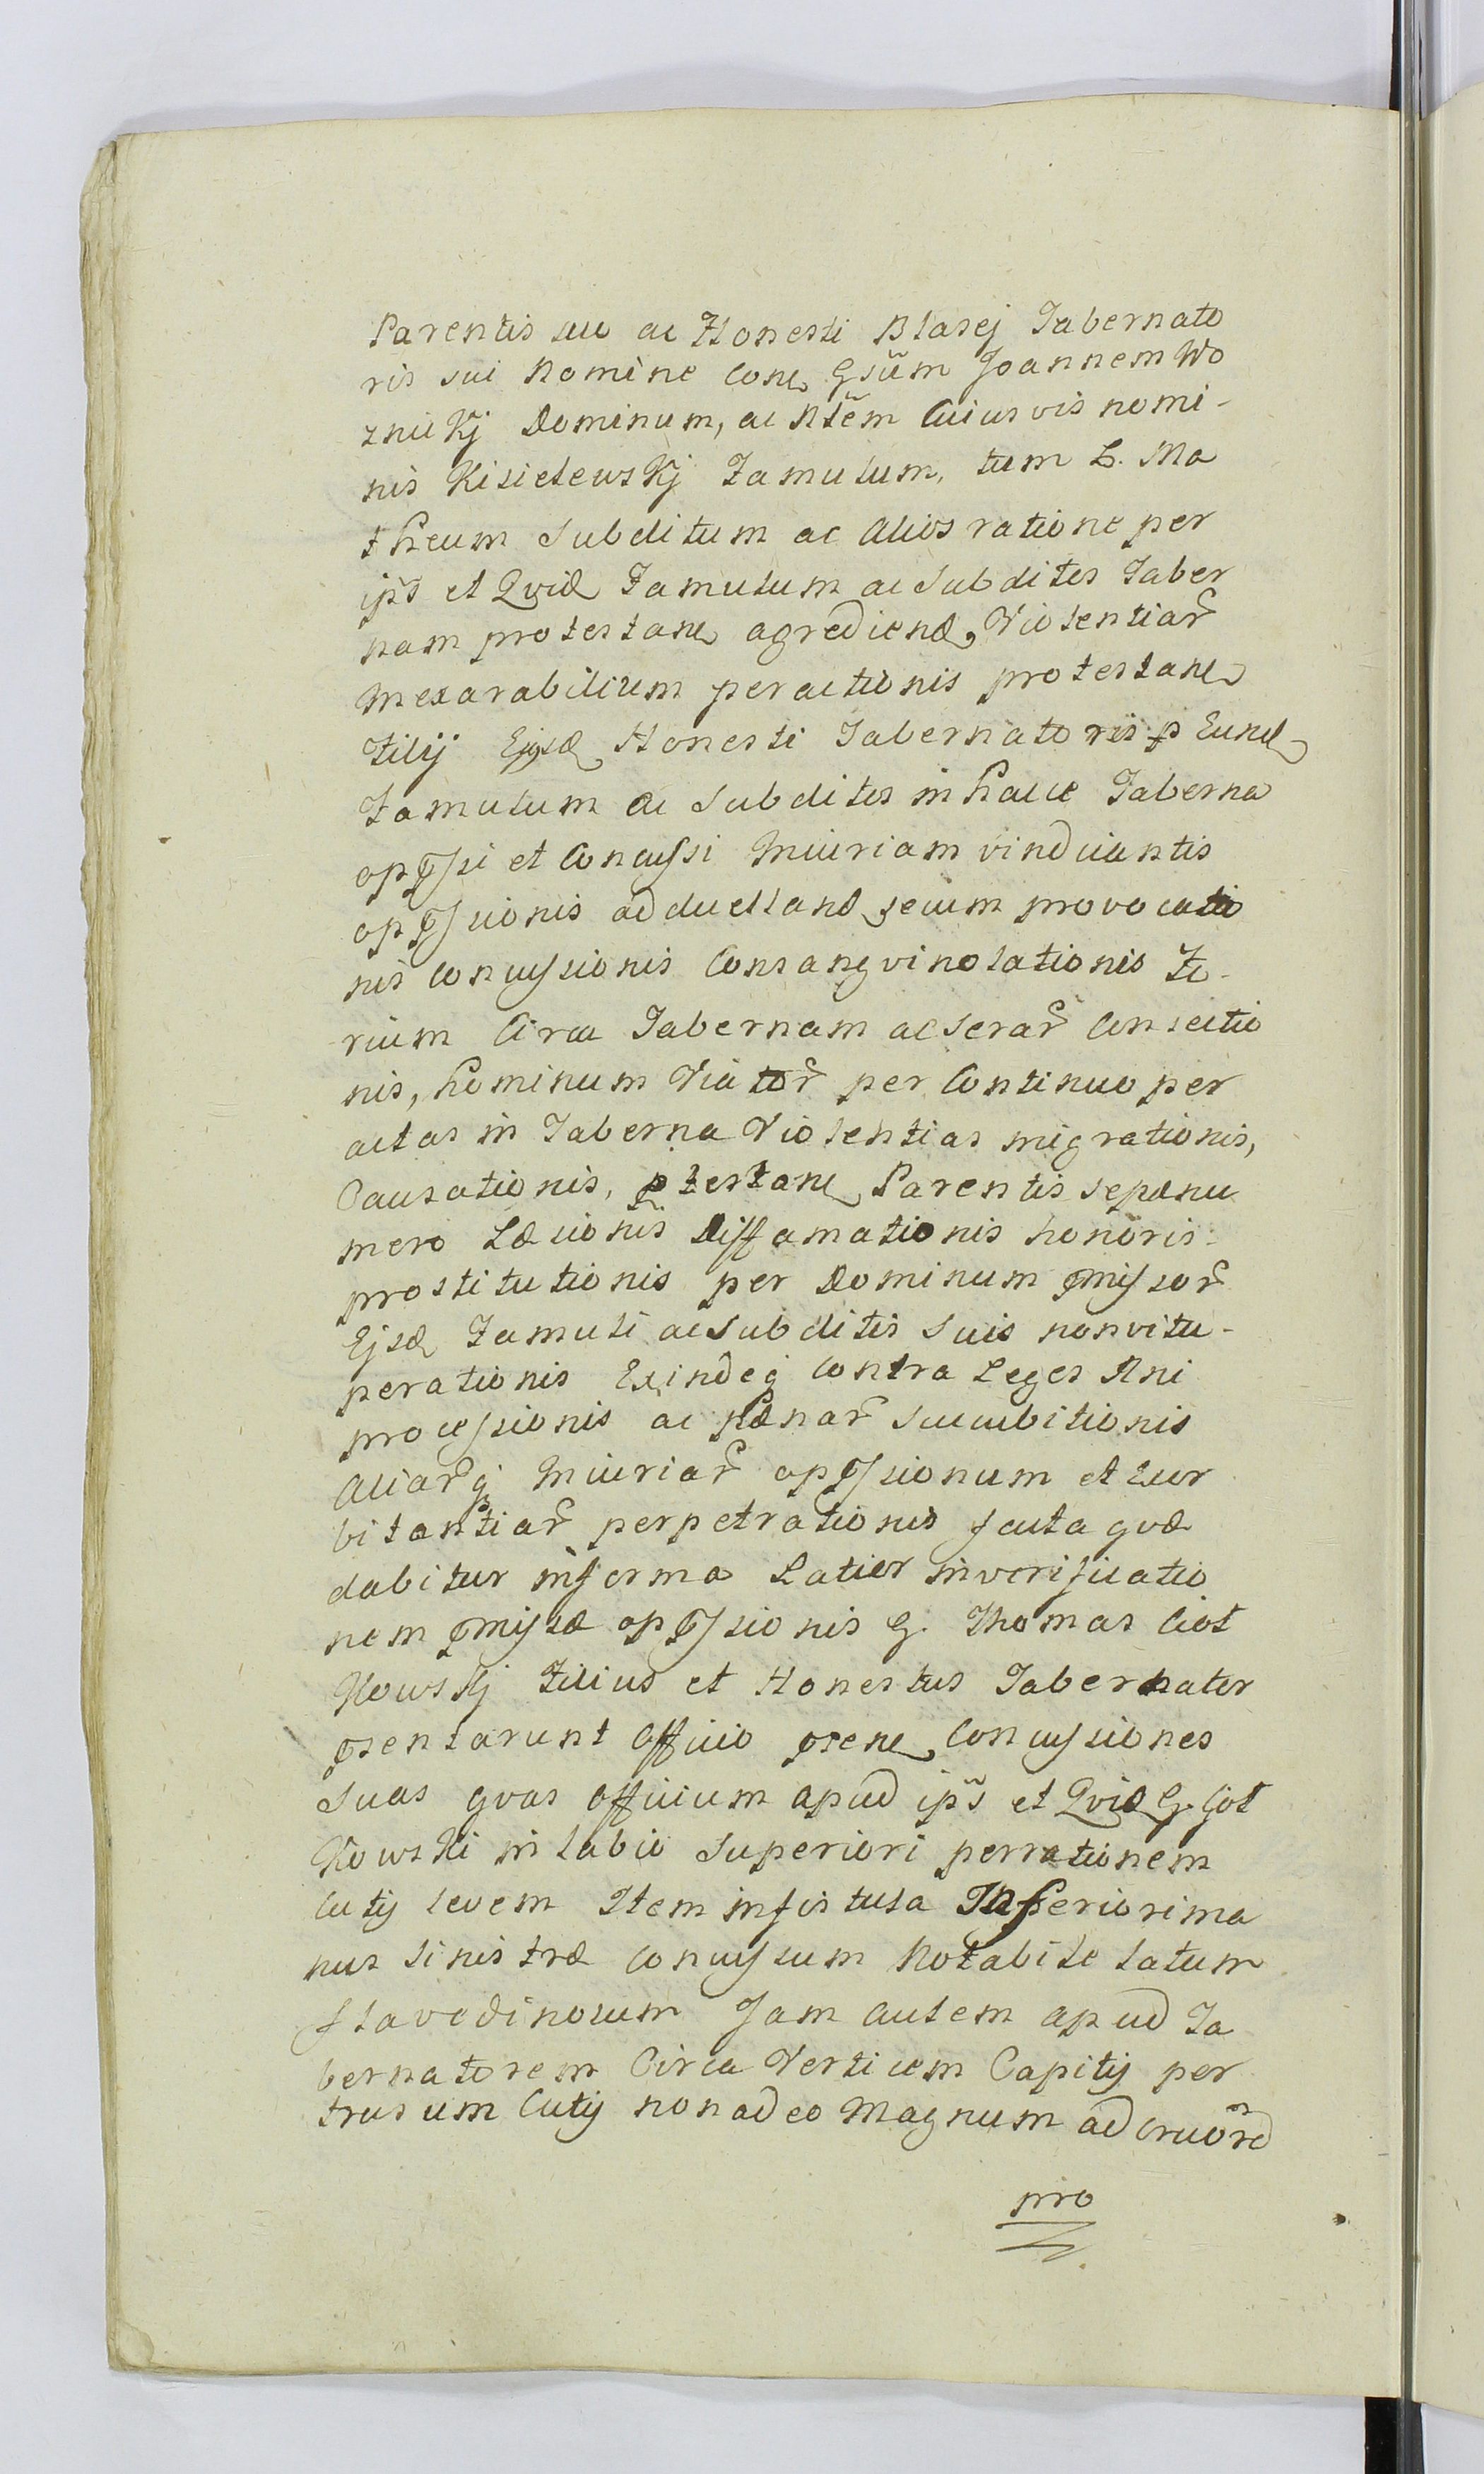 Parentis sui ac Honesti Blasej Tabernato
ris sui Nomine Conc Gsum Joannem Wo
znickj Dominum, ac Ntem Cuiusvis nomi-
nis Kisielewskj Famulum, tum L. Ma
theum Subditum ac Alios ratione per
ips et Qvid Famulum ac Subditos Taber
nam protestanc agrediend, Violentiar
inexarabilium peractionis protestanc
Filij Ejusd Honesti Tabernatoris p Eund
Famulum ac Subditos in hacce Taberna
oppssi et Concussi Iniuriam vindicantis
oppssionis ad duelland secum provocatio
nis concussionis Consangvinolationis Fo-
rium Circa Tabernam ac Serar Consectio
nis, hominum Viator per Continuo per
actas in Taberna Violentias migrationis,
Causationis, ptestanc Parentis sepænu
mero Læsionis Diffamationis honoris
prostitutionis per Dominum pmissor
Ejsd Famuli ac Subditis Suis nonvitu-
perationis Exindeq contra Leges Rni
processionis ac pænar Succubitionis
Aliarq Iniuriar oppssionum et Exor
bitantiar perpetrationis facta qvæ
dabitur informa Latior inverificatio
nem pmissæ oppssionis G. Thomas Ciot
Kowskj Filius et Honestus Tabernator
psentarunt Officio psenc Concussiones
Suas qvas Officium apud ips et Qvid G. Ciot
Kowski in labio Superiori perrationem
Cutij levem Item infistula Inferiori ma
nus Sinistræ Concussum Notabile latum
flavedinosum Jam autem apud Ta
bernatorem Circa Verticem Capitij per
trusum Cutij non adeo Magnum ad cruore
pro